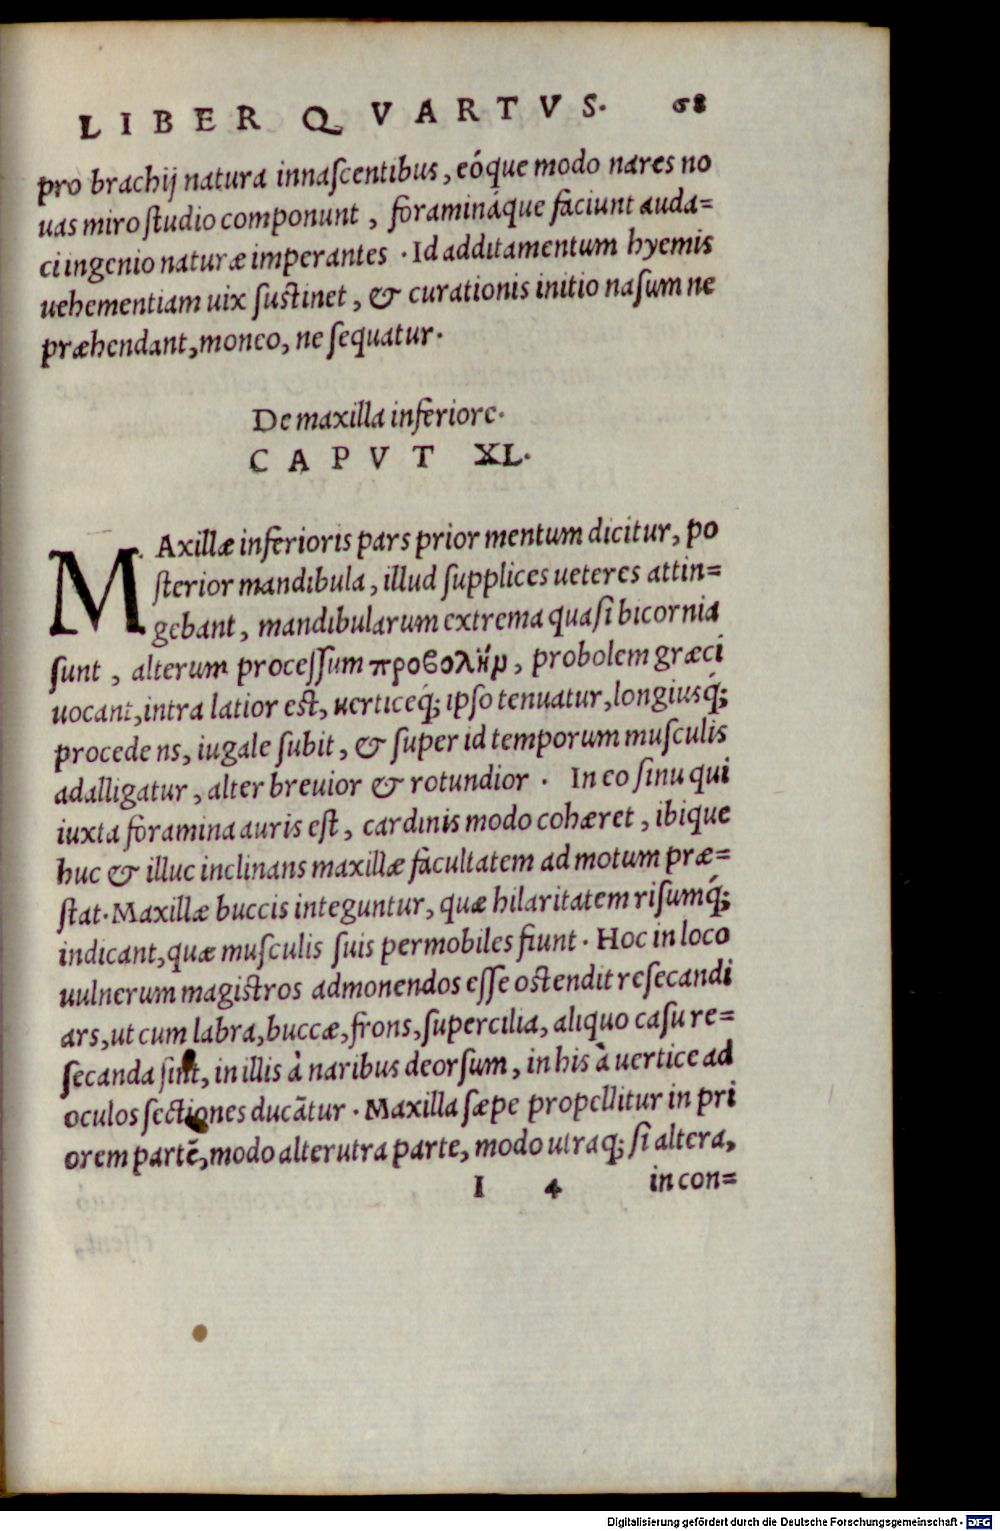 LIBER QVARTVS. 68
pro brachij natura innaſcentibus, eóque modo nares no
uas miro ſtudio componunt, foramináque faciunt auda=
ci ingenio naturæ imperantes. Id additamentum hyemis
uehementiam uix ſuſtinet, & curationis initio naſum ne
præhendant, moneo, ne ſequatur.
De maxilla inferiore.
CAPVT XL.
MAxillæ inferioris pars prior mentum dicitur, po
ſterior mandibula, illud ſupplices ueteres attin=
gebant, mandibularum extrema quaſi bicornia
ſunt, alterum proceſſum προβολὴν, probolem græci
uocant, intra latior eſt, uerticeq́; ipſo tenuatur, longiusq́;
procedens, iugale ſubit, & ſuper id temporum muſculis
adalligatur, alter breuior & rotundior. In eo ſinu qui
iuxta foramina auris eſt, cardinis modo cohæret, ibique
huc & illuc inclinans maxillæ facultatem ad motum præ=
ſtat. Maxillæ buccis integuntur, quæ hilaritatem riſumq́;
indicant, quæ muſculis ſuis permobiles fiunt. Hoc in loco
uulnerum magiſtros admonendos eſſe oſtendit reſecandi
ars, ut cum labra, buccæ, frons, ſupercilia, aliquo caſu re=
ſecanda ſint, in illis à naribus deorſum, in his à uertice ad
oculos ſectiones ducātur. Maxilla ſæpe propellitur in pri
orem partē, modo alterutra parte, modo utraq; ſi altera,
I 4 in con=
Digitalisierung gefördert durch die Deutsche Forschungsgemeinschaft - DFG